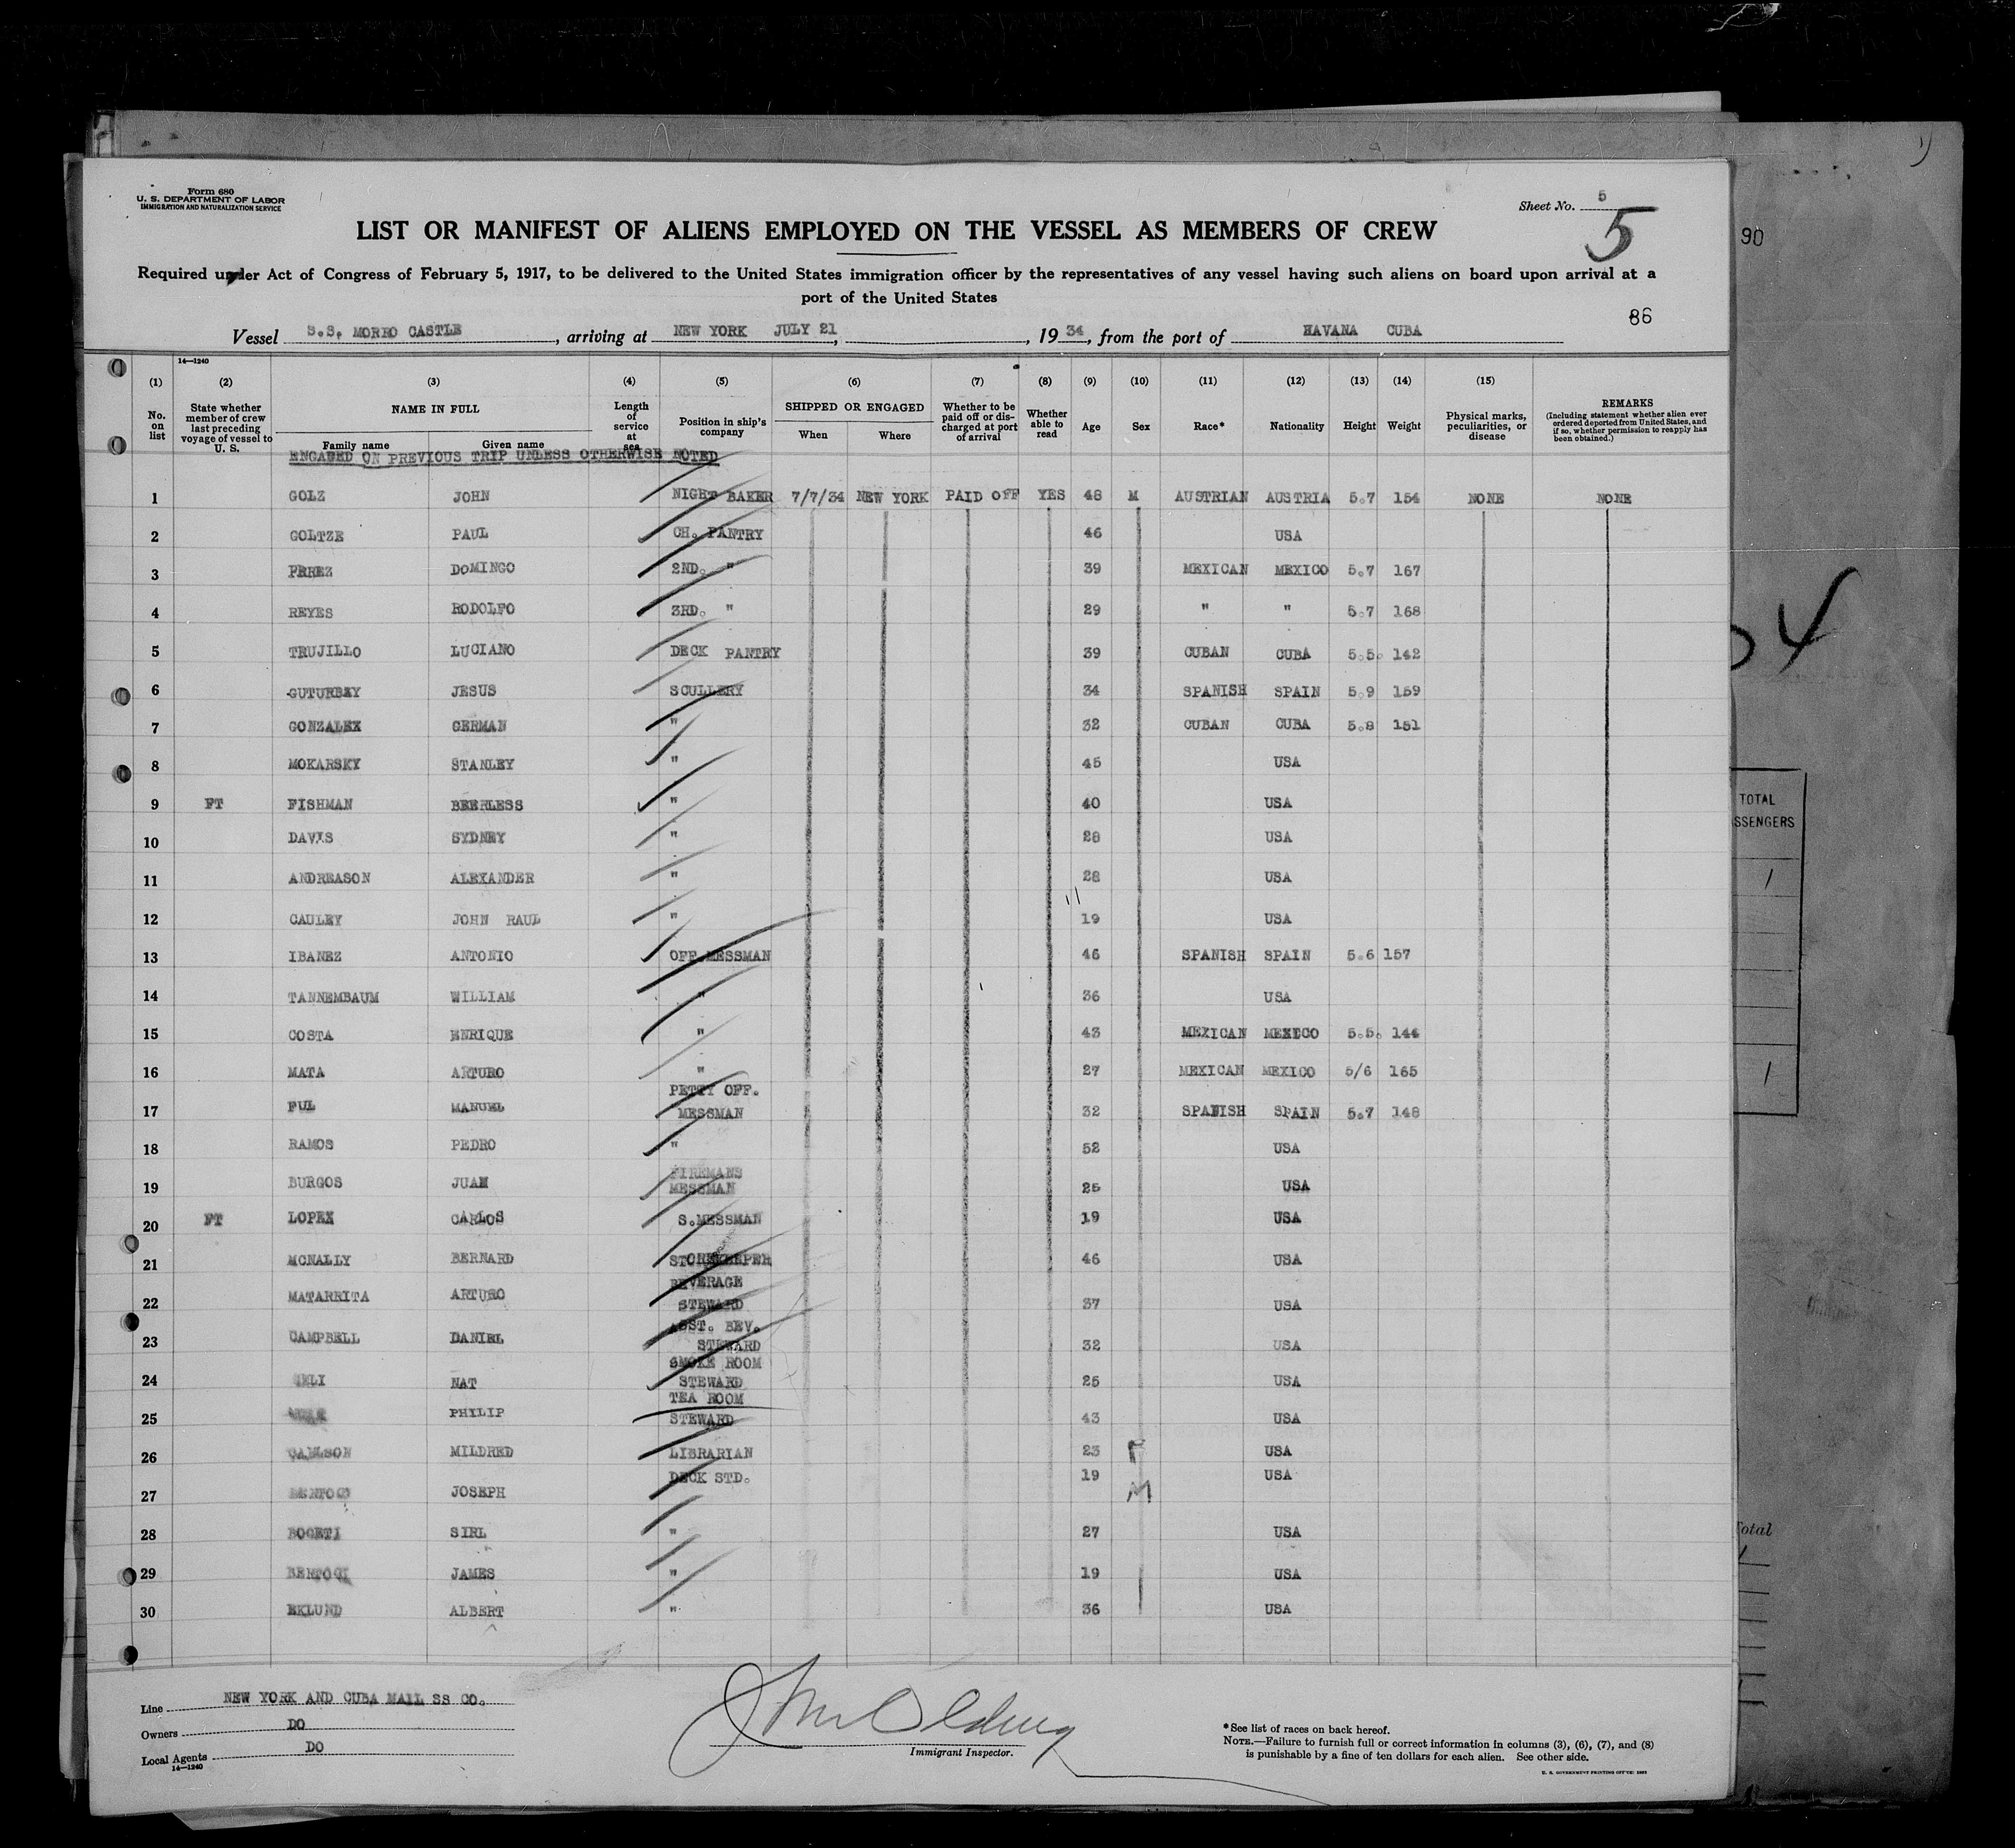 Form 680
U. S. DEPARTMENT OF LABOR
IMMIGRATION AND NATURALIZATION SERVICE
Sheet No. 5
5
LIST OR MANIFEST OF ALIENS EMPLOYED ON THE VESSEL AS MEMBERS OF CREW
90
Required under Act of Congress of February 5, 1917, to be delivered to the United States immigration officer by the representatives of any vessel having such aliens on board upon arrival at a
port of the United States
86
Vessel S.S. MORRO CASTLE, arriving at NEW YORK JULY 21, 1934, from the port of HAVANA CUBA
14—1240
(1) (2) (3) (4) (5) (6) (7) (8) (9) (10) (11) (12) (13) (14) (15)
No. on list
State whether member of crew last preceding voyage of vessel to U. S.
NAME IN FULL
Family name Given name
Length of service at sea
Position in ship's company
SHIPPED OR ENGAGED
When Where
Whether to be paid off or discharged at port of arrival
Whether able to read
Age Sex Race* Nationality Height Weight
Physical marks, peculiarities, or disease
REMARKS
(Including statement whether alien ever ordered deported from United States, and if so, whether permission to reapply has been obtained.)
ENGAGED ON PREVIOUS TRIP UNLESS OTHERWISE NOTED
1 GOLZ JOHN NIGHT BAKER 7/7/34 NEW YORK PAID OFF YES 48 M AUSTRIAN AUSTRIA 5.7 154 NONE NONE
2 GOLTZE PAUL CH. PANTRY 46 USA
3 PEREZ DOMINGO 2ND. " 39 MEXICAN MEXICO 5.7 167
4 REYES RODOLFO 3RD. " 29 " " 5.7 168
5 TRUJILLO LUCIANO DECK PANTRY 39 CUBAN CUBA 5.5. 142
6 GUTURBAY JESUS SCULLERY 34 SPANISH SPAIN 5.9 159
7 GONZALEX GERMAN " 32 CUBAN CUBA 5.8 151
8 MOKARSKY STANLEY " 45 USA
9 FT FISHMAN BEERLESS " 40 USA
10 DAVIS SYDNEY " 28 USA
11 ANDREASON ALEXANDER " 28 USA
12 CAULEY JOHN RAUL " 19 USA
13 IBANEZ ANTONIO OFF.MESSMAN 46 SPANISH SPAIN 5.6 157
14 TANNEMBAUM WILLIAM " 36 USA
15 COSTA ENRIQUE " 43 MEXICAN MEXICO 5.5. 144
16 MATA ARTURO " 27 MEXICAN MEXICO 5/6 165
17 FUL MANUEL PETTY OFF. MESSMAN 32 SPANISH SPAIN 5.7 148
18 RAMOS PEDRO " 52 USA
19 BURGOS JUAN FIREMANS MESSMAN 25 USA
20 FT LOPEX CARLOS S.MESSMAN 19 USA
21 MCNALLY BERNARD STOREKEEPER 46 USA
22 MATARRITA ARTURO BEVERAGE STEWARD 37 USA
23 CAMPBELL DANIEL ASST. BEV. STEWARD 32 USA
24 NAT SMOKE ROOM STEWARD 25 USA
25 PHILIP TEA ROOM STEWARD 43 USA
26 CARLSON MILDRED LIBRARIAN 23 F USA
27 JOSEPH DECK STD. 19 M USA
28 BOGETI SIRL " 27 USA
29 JAMES " 19 USA
30 EKLUND ALBERT " 36 USA
TOTAL
1
1
Total
Line NEW YORK AND CUBA MAIL SS CO.
Owners DO
Local Agents DO
14—1240
Immigrant Inspector.
*See list of races on back hereof.
NOTE.—Failure to furnish full or correct information in columns (3), (6), (7), and (8)
is punishable by a fine of ten dollars for each alien. See other side.